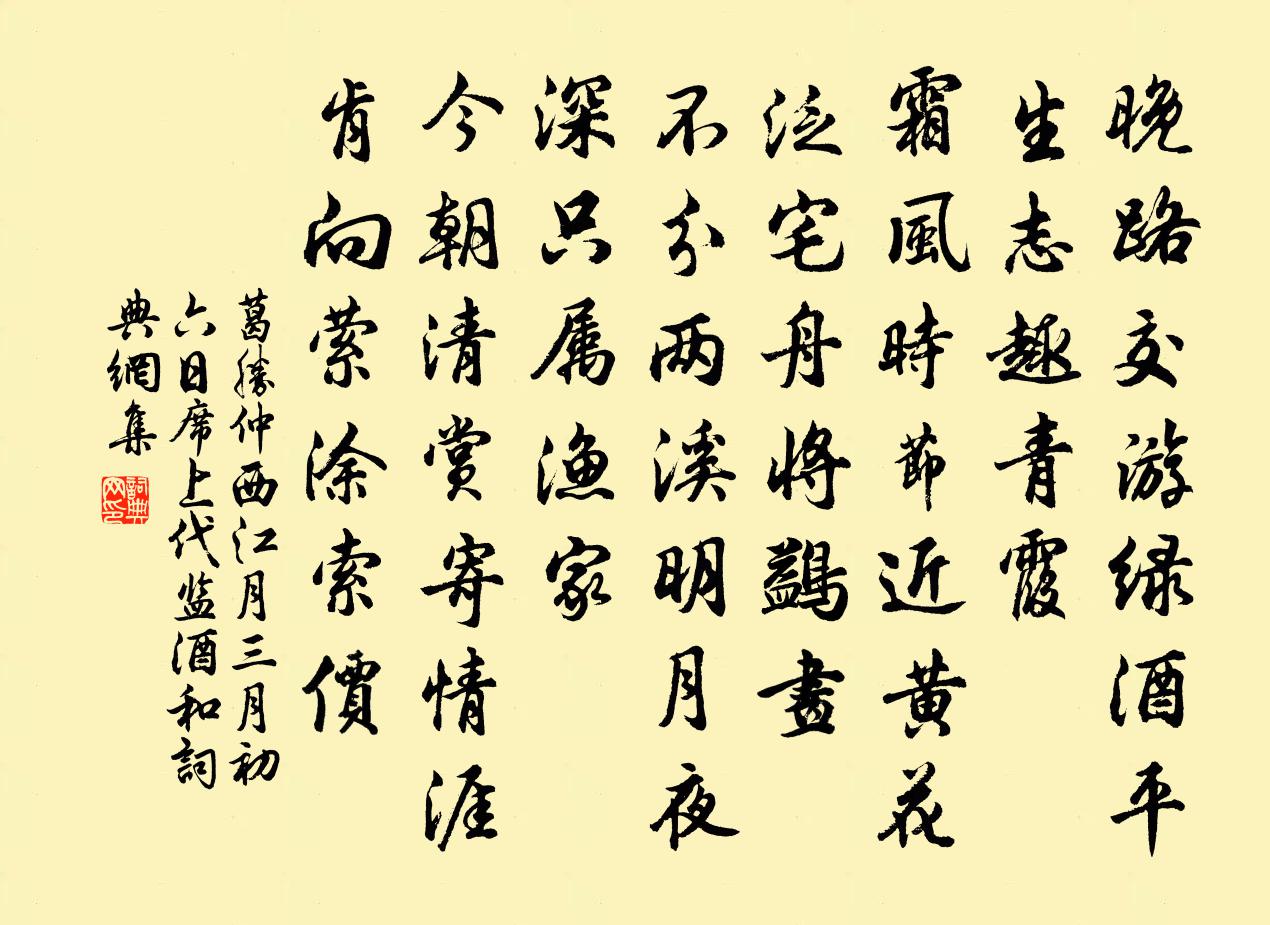 晚路交游绿酒平
生志趣青霞
霜風時節近黄花
泛宅舟将鷁畫
不分两溪明月夜
深只属漁家
今朝清赏寄情涯
肯向萦涂索價
葛勝仲西江月三月初
六日席上代监酒和詞
典網集
詞典网印